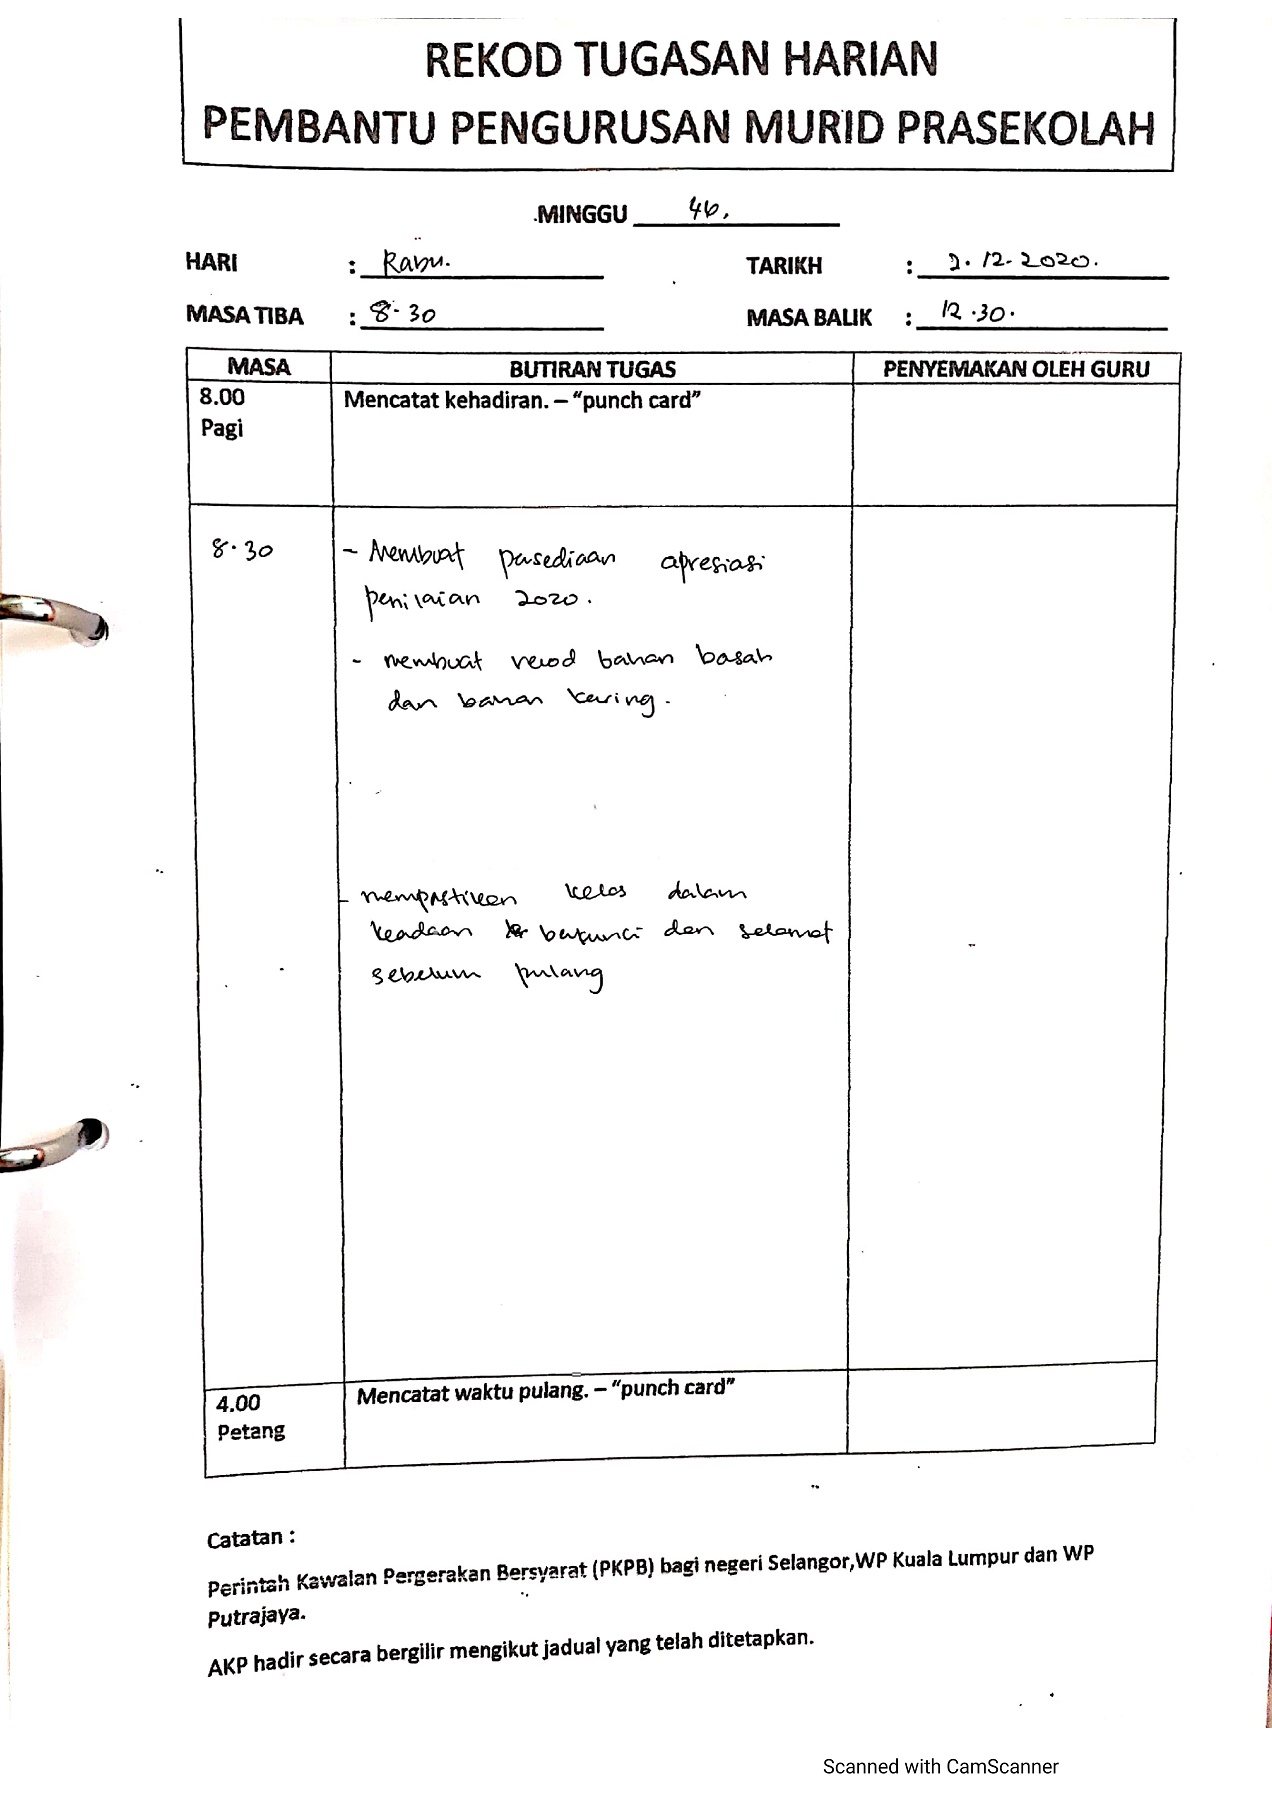 REKOD TUGASAN HARIAN
PEMBANTU PENGURUSAN MURID PRASEKOLAH
MINGGU 46.
HARI : Rabu. TARIKH : 2.12.2020.
MASA TIBA : 8.30 MASA BALIK : 12.30.
MASA BUTIRAN TUGAS PENYEMAKAN OLEH GURU
8.00 Mencatat kehadiran. – “punch card”
Pagi
8.30 - Membuat persediaan apresiasi
penilaian 2020.
- membuat rekod bahan basah
dan bahan kering.
- mempastikan kelas dalam
keadaan berkunci dan selamat
sebelum pulang
4.00 Mencatat waktu pulang. – “punch card”
Petang
Catatan :
Perintah Kawalan Pergerakan Bersyarat (PKPB) bagi negeri Selangor,WP Kuala Lumpur dan WP
Putrajaya.
AKP hadir secara bergilir mengikut jadual yang telah ditetapkan.
Scanned with CamScanner